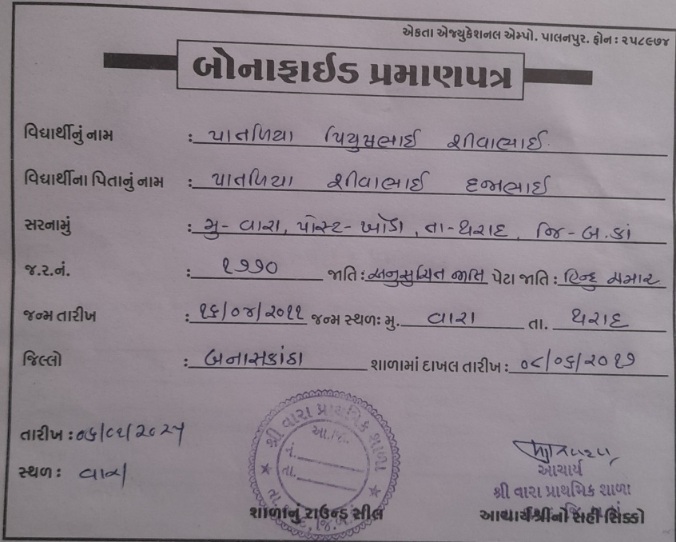 એકતા એજ્યુકેશનલ એમ્પો. પાલનપુર. ફોન : ૨૫૮૯૭૪
બોનાફાઈડ પ્રમાણપત્ર
વિદ્યાર્થીનું નામ : પાતળિયા પિયુષભાઈ શીવાભાઈ.
વિદ્યાર્થીના પિતાનું નામ : પાતળિયા શીવાભાઈ
સરનામું : મુ - વારા, પોસ્ટ - ખોડા, તા - થરાદ, જિ - બ.કાં
જ.ર.નં. : ૧૭૭૦ જાતિ : અનુસુચિત જાતિ પેટા જાતિ : હિન્દુ ચમાર
જન્મ તારીખ : ૧૬/૦૪/૨૦૧૧ જન્મ સ્થળઃ મુ. વારા તા. થરાદ
જિલ્લો : બનાસકાંઠા શાળામાં દાખલ તારીખ : ૦૮/૦૬/૨૦૧૭
શ્રી વારા પ્રાથમિક શાળા
નં.
તા.
તારીખ :
સ્થળ : વારા
આચાર્ય
શ્રી વારા પ્રાથમિક શાળા
શાળાનું રાઉન્ડ સીલ આચાર્યશ્રીનો સહી સિક્કો